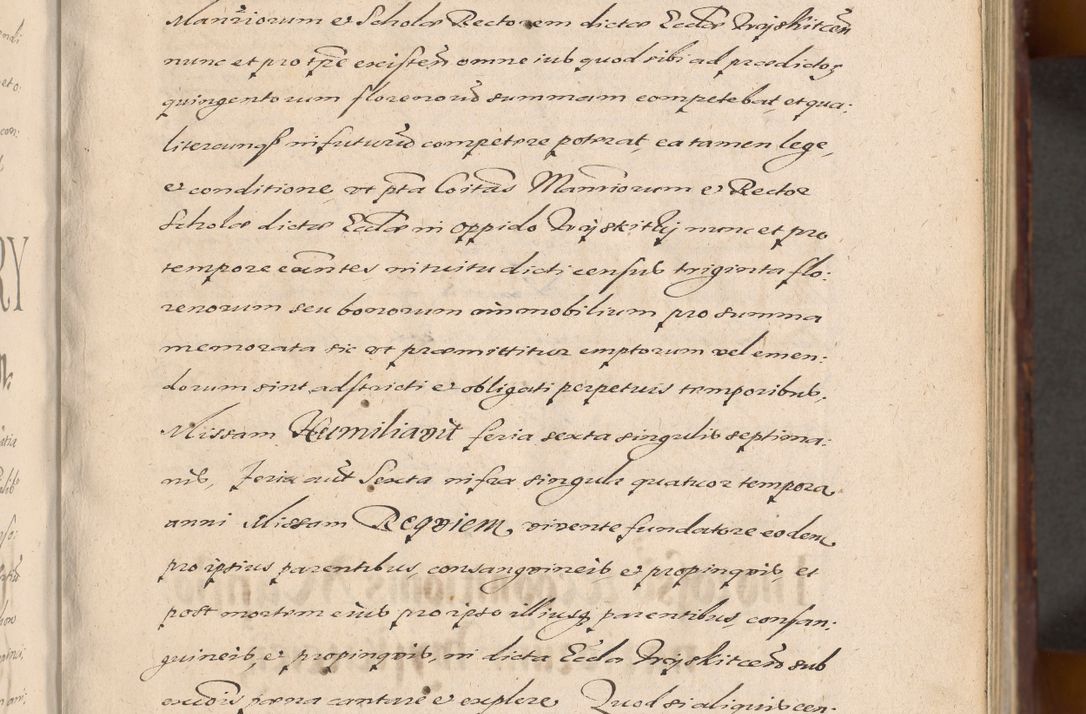 Mañriorum et Scholæ Rectorem dictæ Eccłæ Trzÿskitceñ
nunc et pro tp̃re existeñ omne ius quod sibi ad prædictos
quingentorum florenorũ summam competebat, et qua-
litercunq3 in futurũ competere poterat, ea tamen lege,
et conditione vt pt̃a Coĩtas Mañriorum et Rector
Scholæ dictæ Eccłæ in oppido Trzÿskitÿ nunc et pro
tempore eãntes intuitu dicti census triginta flo-
renorum seu bonorum immobilium pro summa
memorata sic vt præmittitur emptorum vel emen-
dorum sint adstricti et obligati perpetuis temporibus,
Missam Humiliavit feria sexta singulis septima-
nis, Feria aũt Sexta infra singula quatuor tempora
anni Missam Reqviem, vivente fundatore eodem
pro ipsius parentibus, consangvineis et propinqvis, et
post mortem eius pro ipso illiusq3 parentibus consan-
guineis, et propinqvis, in dicta Eccła Trzÿskitceñ sub
excõis pœna cantare et explere. Quod si aliquis cen-